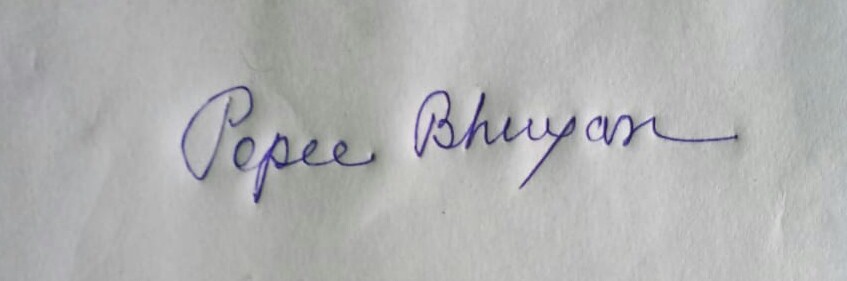 Popee Bhuyan